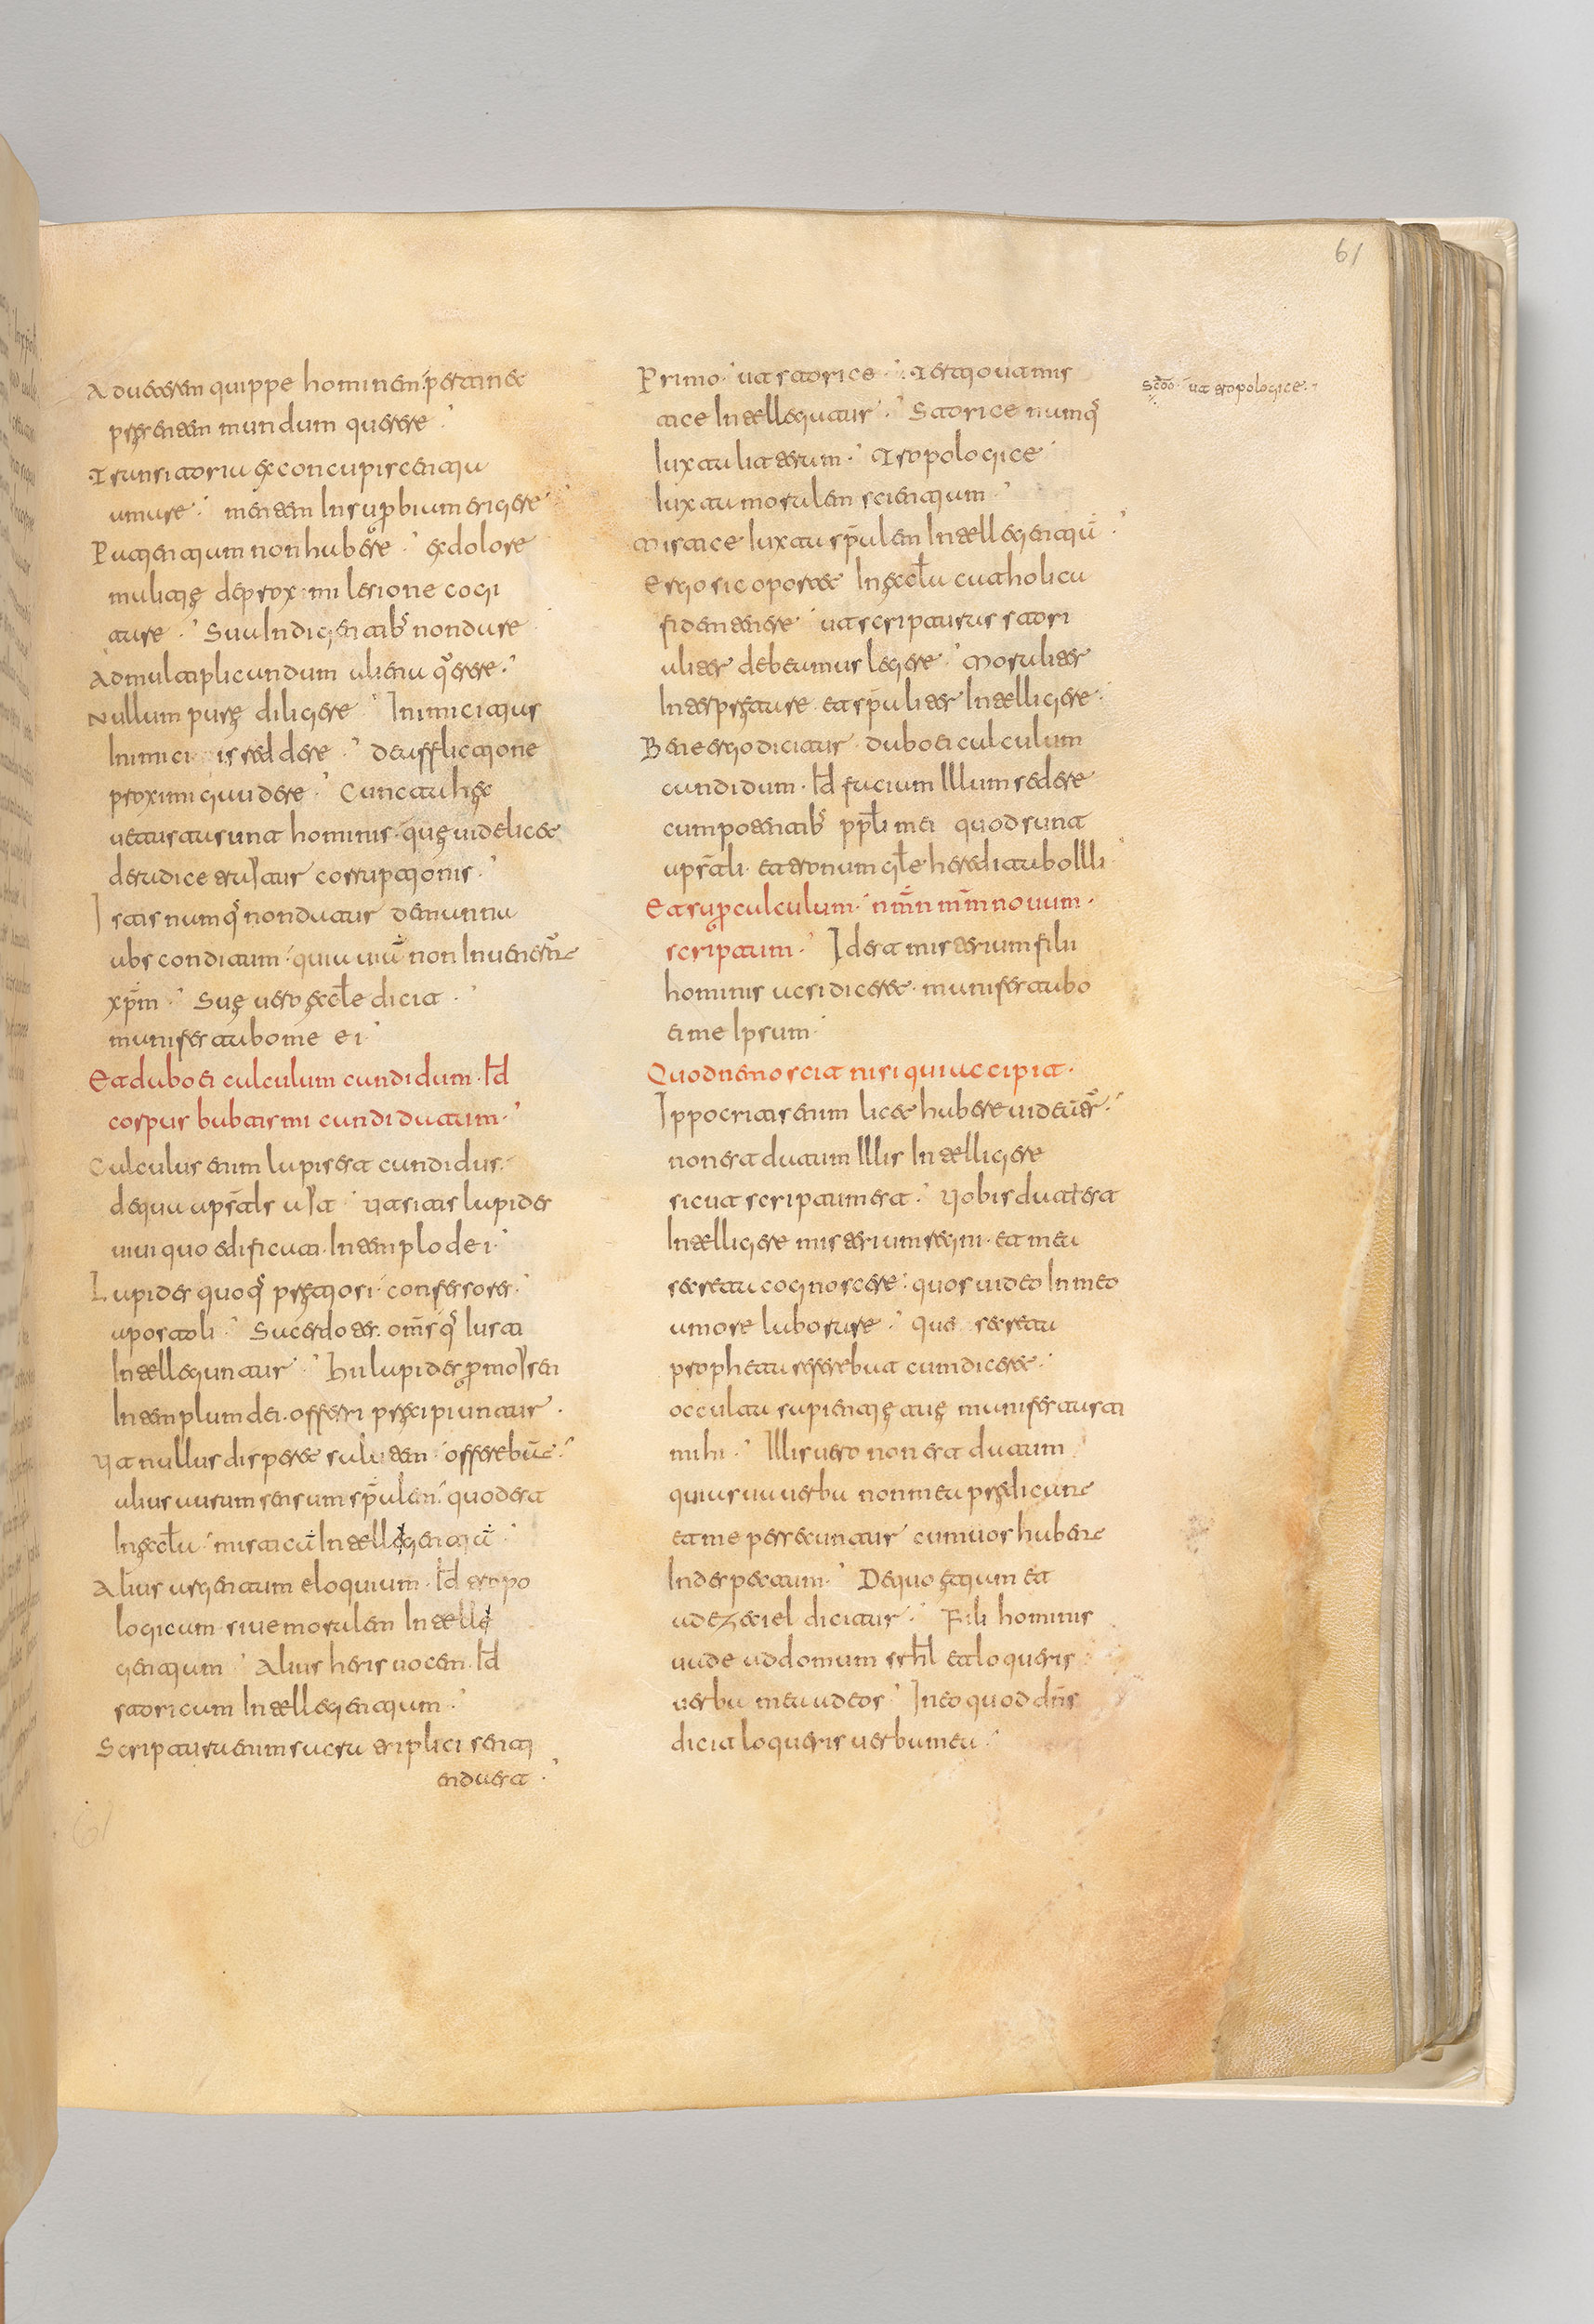 Ad ueterem quippe hominem pertinet
presentem mundum querere
Transitoria et concupiscentia
amare mentem in suꝑbiam erigere
Patientiam non habere et dolore
malitię de proximi lesione cogi
tare Sua indigentib; non dare
Ad multiplicandum aliena q̄rere
Nullum purę diligere Inimicitias
inimicis reddere de afflictione
proximi gaudere Cuncta hęc
uetustatis sunt hominis quę uidelicet
de radice trahitur corruptionis
Istis numq̄ non datur de manna
absconditum quia uiū non inuenerūt
xp̄m Suę uero ęccl̄e dicit
manifestabo me ei
Et dabo ei calculum candidum id
corpus babtismi candidatum
Calculus enim lapis est candidus
de qua apstls ait Ut sitis lapides
uiui quo edificati in templo dei
Lapides quoq; prętiosi confessores
apostoli Sacerdotes om̄sq; iusti
intelleguntur Hii lapides ꝑ moysen
in templum dei offerri pręcipiuntur
Ut nullus disperet salutem offerebān
alius aurum sensum sp̄alem quod est
in ęccl̄a misticū intellegentiā
Alius argentum eloquium id tropo
logicum siue moralem intelle
gentiam Alius heris uocem id
storicum intellegentiam
Scriptura enim sacra triplici senti
enda est
Primo ut storice Tertio ut mis
tice intellegatur Storice numq̄
iuxta litterum Tropologice
iuxta moralem scientiam
Mistice iuxta sp̄alem intellegentiā
Ergo sic oportet in ęccl̄a catholica
fidem tenere ut scripturas stori
aliter debeamus legere Moraliter
interpretare et sp̄aliter intelligere
Bene ergo dicitur dabo ei calculum
candidum id faciam illum sedere
cum potentib; pp̄li mei quod sunt
apstli et tronum gl̄e hereditabo illi
Et suꝑ calculum nm̄n nm̄m nouum
scriptum Id est misterium filii
hominis ac si diceret manifestabo
ei me ipsum
Quod nemo scit nisi qui accipit
Ippocritis enim licet habere uideātr
non est datum illis intelligere
sicut scriptum est Uobis datum est
intelligere misterium regni et mea
secreta cognoscere quos uideo in meo
amore laborare Que secreta
propheta referebat cum diceret
occulta sapientię tuę manifestasti
mihi Illis uero non est datum
quia sua uerba non mea prędicant
et me persecuntur cum uos habent
in despectum De quo etiam et
ad ezeciel dicitur Fili hominis
uade ad domum srhl et loqueris
uerba mea ad eos In eo quod dn̄s
dicit loqueris uerba mea
Scdō ut tropologice
61
61